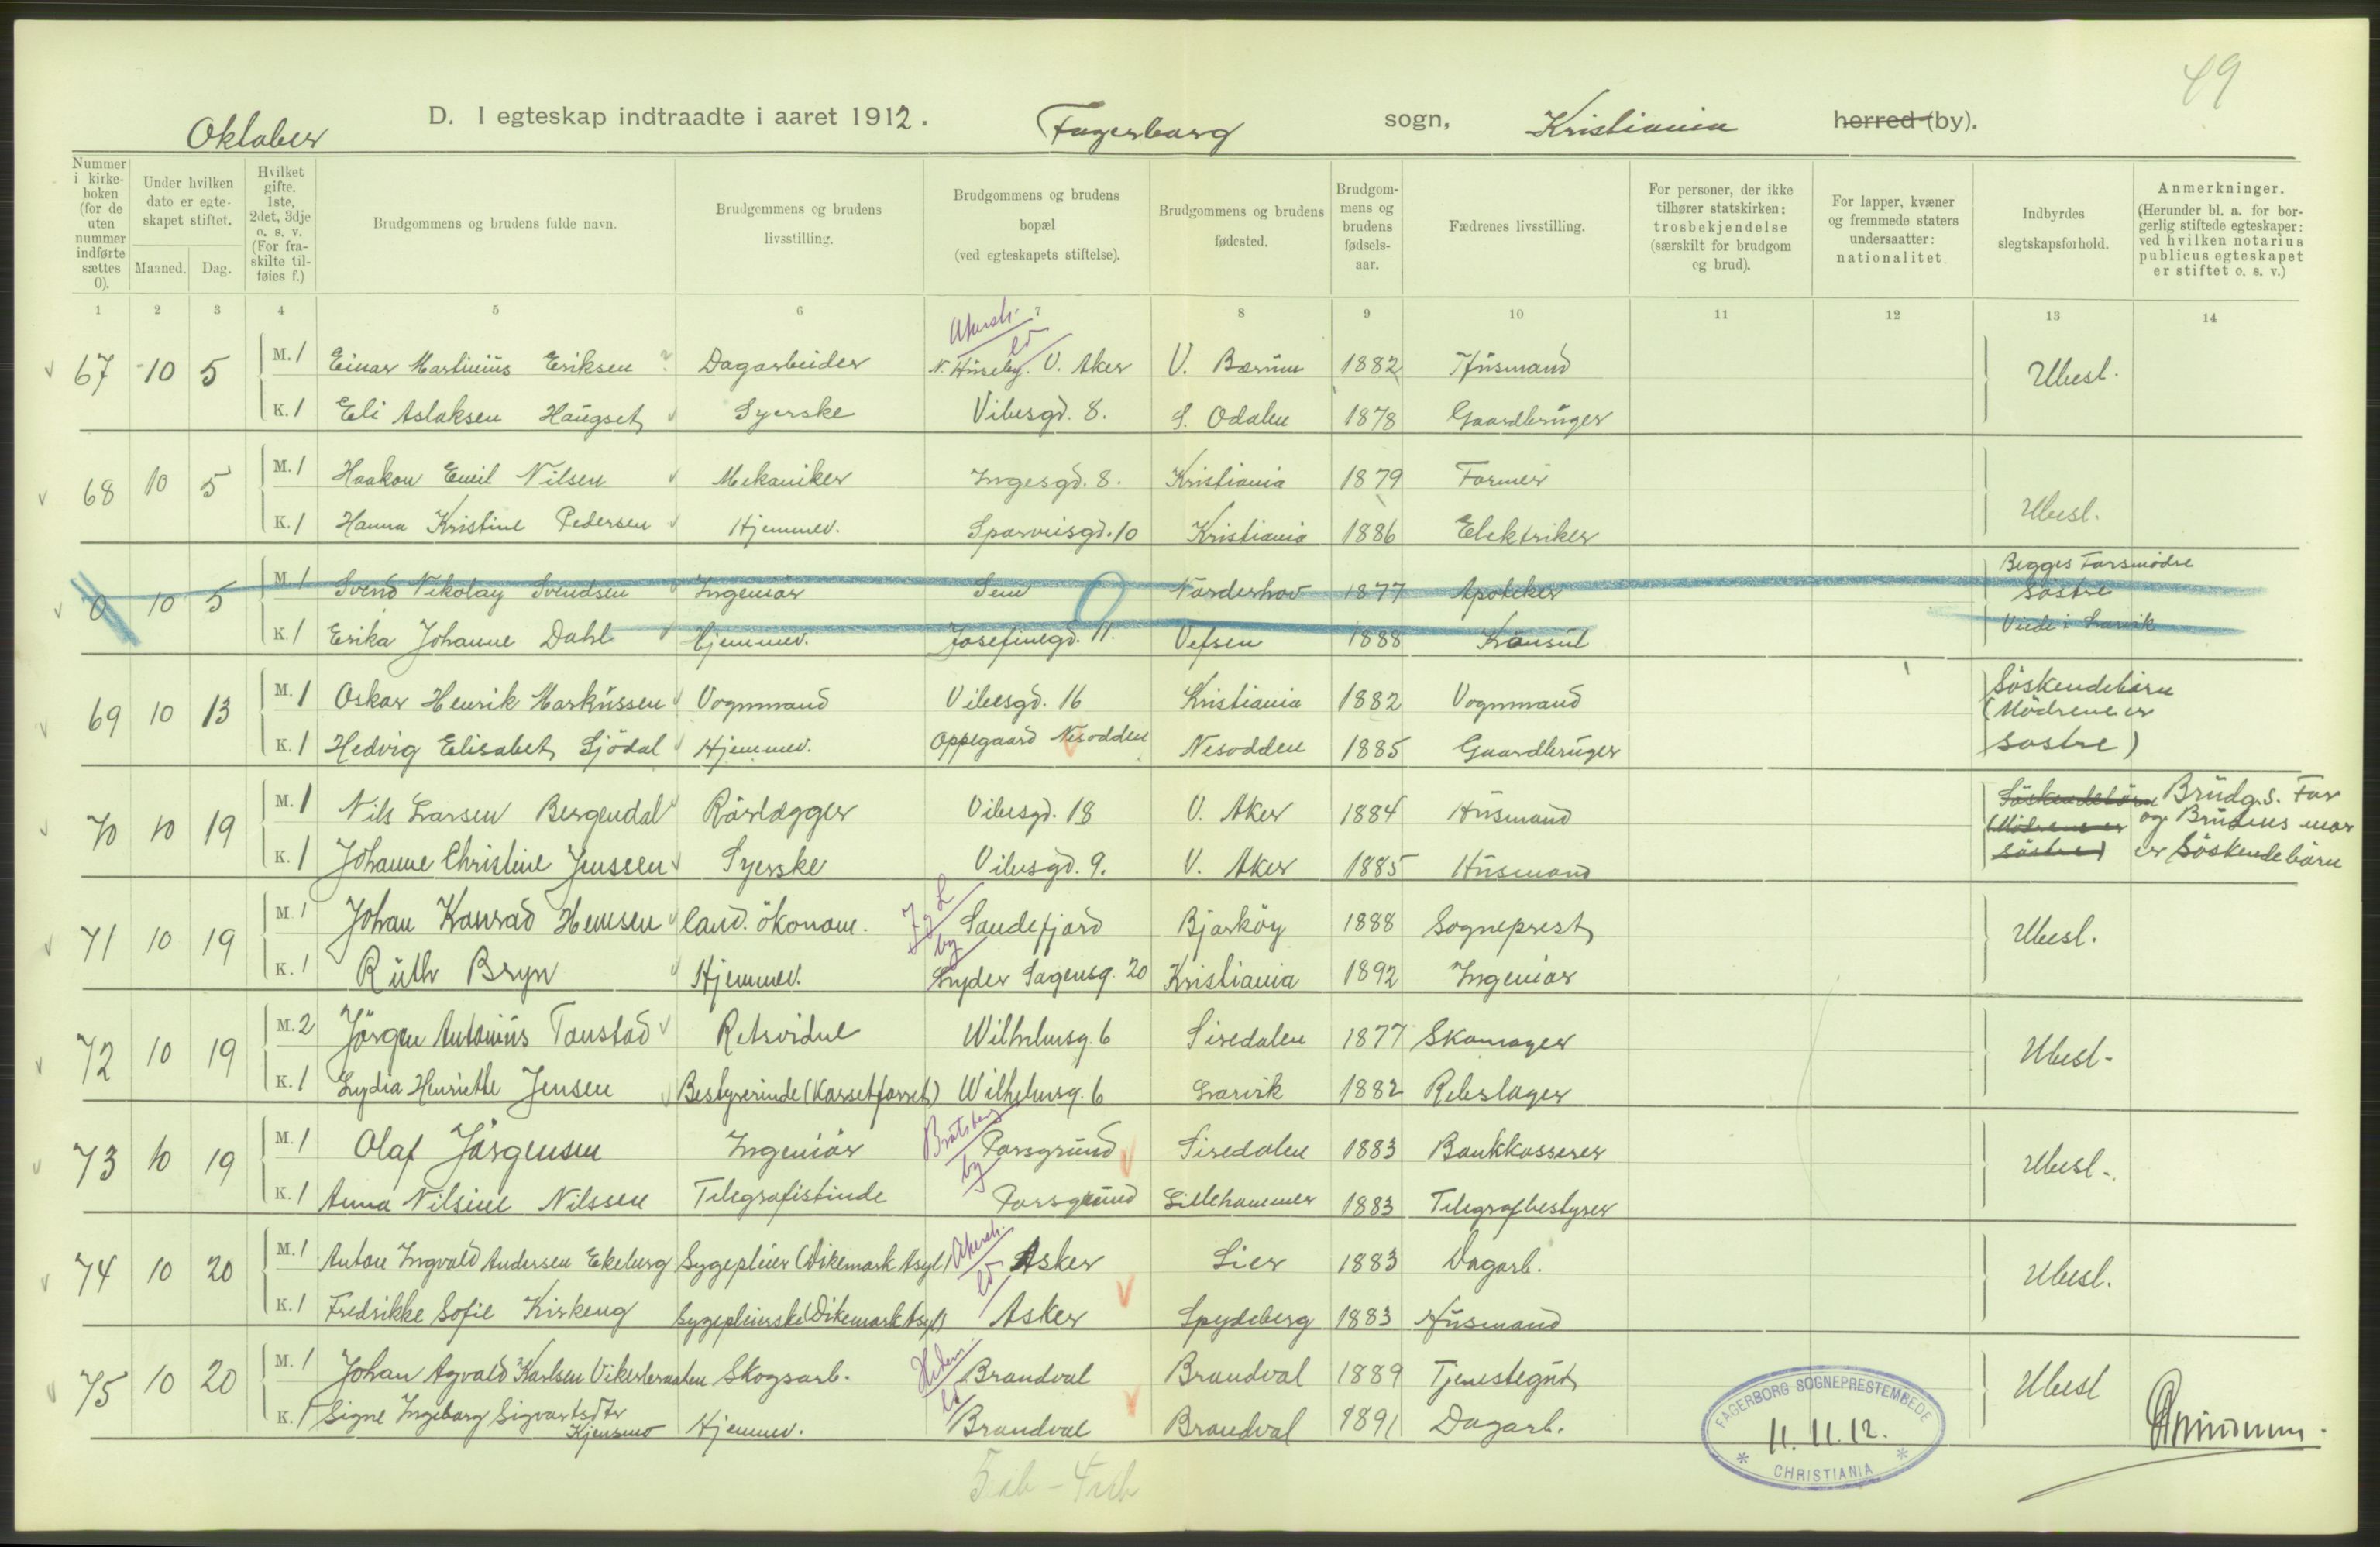 49
Oktober D. I egteskap indtraadte i aaret 1912. Fagerborg sogn, Kristiania herred (by).
Nummer i kirke-boken (for de uten nummer indførte sættes 0).
Under hvilken dato er egte-skapet stiftet.
Maaned. Dag.
Hvilket gifte. 1ste, 2det, 3dje o. s. v. (For fra-skilte til-føies f.)
Brudgommens og brudens fulde navn.
Brudgommens og brudens livsstilling.
Brudgommens og brudens bopæl (ved egteskapets stiftelse).
Brudgommens og brudens fødested.
Brudgom-mens og brudens fødsels-aar.
Fædrenes livsstilling.
For personer, der ikke tilhører statskirken: trosbekjendelse (særskilt for brudgom og brud).
For lapper, kvæner og fremmede staters undersaatter: nationalitet
Indbyrdes slegtskapsforhold.
Anmerkninger. (Herunder bl. a. for bor-gerlig stiftede egteskaper: ved hvilken notarius publicus egteskapet er stiftet o. s. v.)
1 2 3 4 5 6 7 8 9 10 11 12 13 14
Akersh. ld
67 10 5 M. 1 Einar Martinius Eriksen Dagarbeider N. Huseby. V. Aker V. Bærum 1882 Husmand Ubesl.
K. 1 Eli Aslaksen Haugset Syerske Vibesgd. 8. S. Odalen 1878 Gaardbruger
68 10 5 M. 1 Haakon Emil Nilsen Mekaniker Ingesgd. 8. Kristiania 1879 Former Ubesl.
K. 1 Hanna Kristine Pedersen Hjemmev. Sporveisgd. 10 Kristiania 1886 Elektriker
0 10 5 M. 1 Svend Nikolay Svendsen Ingeniør Sem 0 Norderhov 1877 Apoteker Begges Farsmødre søstre
K. 1 Erika Johanne Dahl Hjemmev. Josefinegd. 11. Vefsen 1888 Konsul Viede i Larvik
69 10 13 M. 1 Oskar Henrik Markussen Vognmand Vibesgd. 16 Kristiania 1882 Vognmand Søskendebørn (Mødrene er søstre)
K. 1 Hedvig Elisabet Sjödal Hjemmev. Oppegaard Nesodden Nesodden 1885 Gaardbruger
70 10 19 M. 1 Nils Larsen Bergendal Rørlægger Vibesgd. 18 V. Aker 1884 Husmand Søskendebørn (Mødrene er søstre) Brudg.s. Far og Brudens mor er Søskendebørn
K. 1 Johanne Christine Jenssen Syerske Vibesgd. 9. V. Aker 1885 Husmand
J & L by
71 10 19 M. 1 Johan Konrad Hemsen Cand. økonom. Sandefjord Bjarköy 1888 Sogneprest Ubesl.
K. 1 Ruth Bryn Hjemmev. Lyder Sagensg. 20 Kristiania 1892 Ingeniør
72 10 19 M. 2 Jörgen Antonius Tonstad Retsvidne Wilhelmsg. 6 Siredalen 1877 Skomager Ubesl.
K. 1 Lydia Henriette Jensen Bestyrerinde (Korsetforret) Wilhelmsg. 6 Larvik 1882 Rebslager
Bratsberg by
73 10 19 M. 1 Olaf Jörgensen Ingeniør Porsgrund Siredalen 1883 Bankkasserer Ubesl.
K. 1 Anna Nilsine Nilssen Telegrafistinde Porsgrund Lillehammer 1883 Telegrafbestyrer
Akersh. ld
74 10 20 M. 1 Anton Ingvald Andersen Ekeberg Sygepleier (Dikemark Asyl) Asker Lier 1883 Dagarb. Ubesl.
K. 1 Fredrikke Sofie Kirkeng Sygepleierske (Dikemark Asyl) Asker Spydeberg 1883 Husmand
Hedem. ld
75 10 20 M. 1 Johan Agvald Karlsen Vikerbraaten Skogsarb. Brandval Brandval 1889 Tjenestegut Ubesl
K. 1 Signe Ingeborg Sigvartsdtr Kjensmo Hjemmev. Brandval Brandval 1891 Dagarb.
FAGERBORG SOGNEPRESTEMBEDE
11. 11. 12.
* CHRISTIANIA *